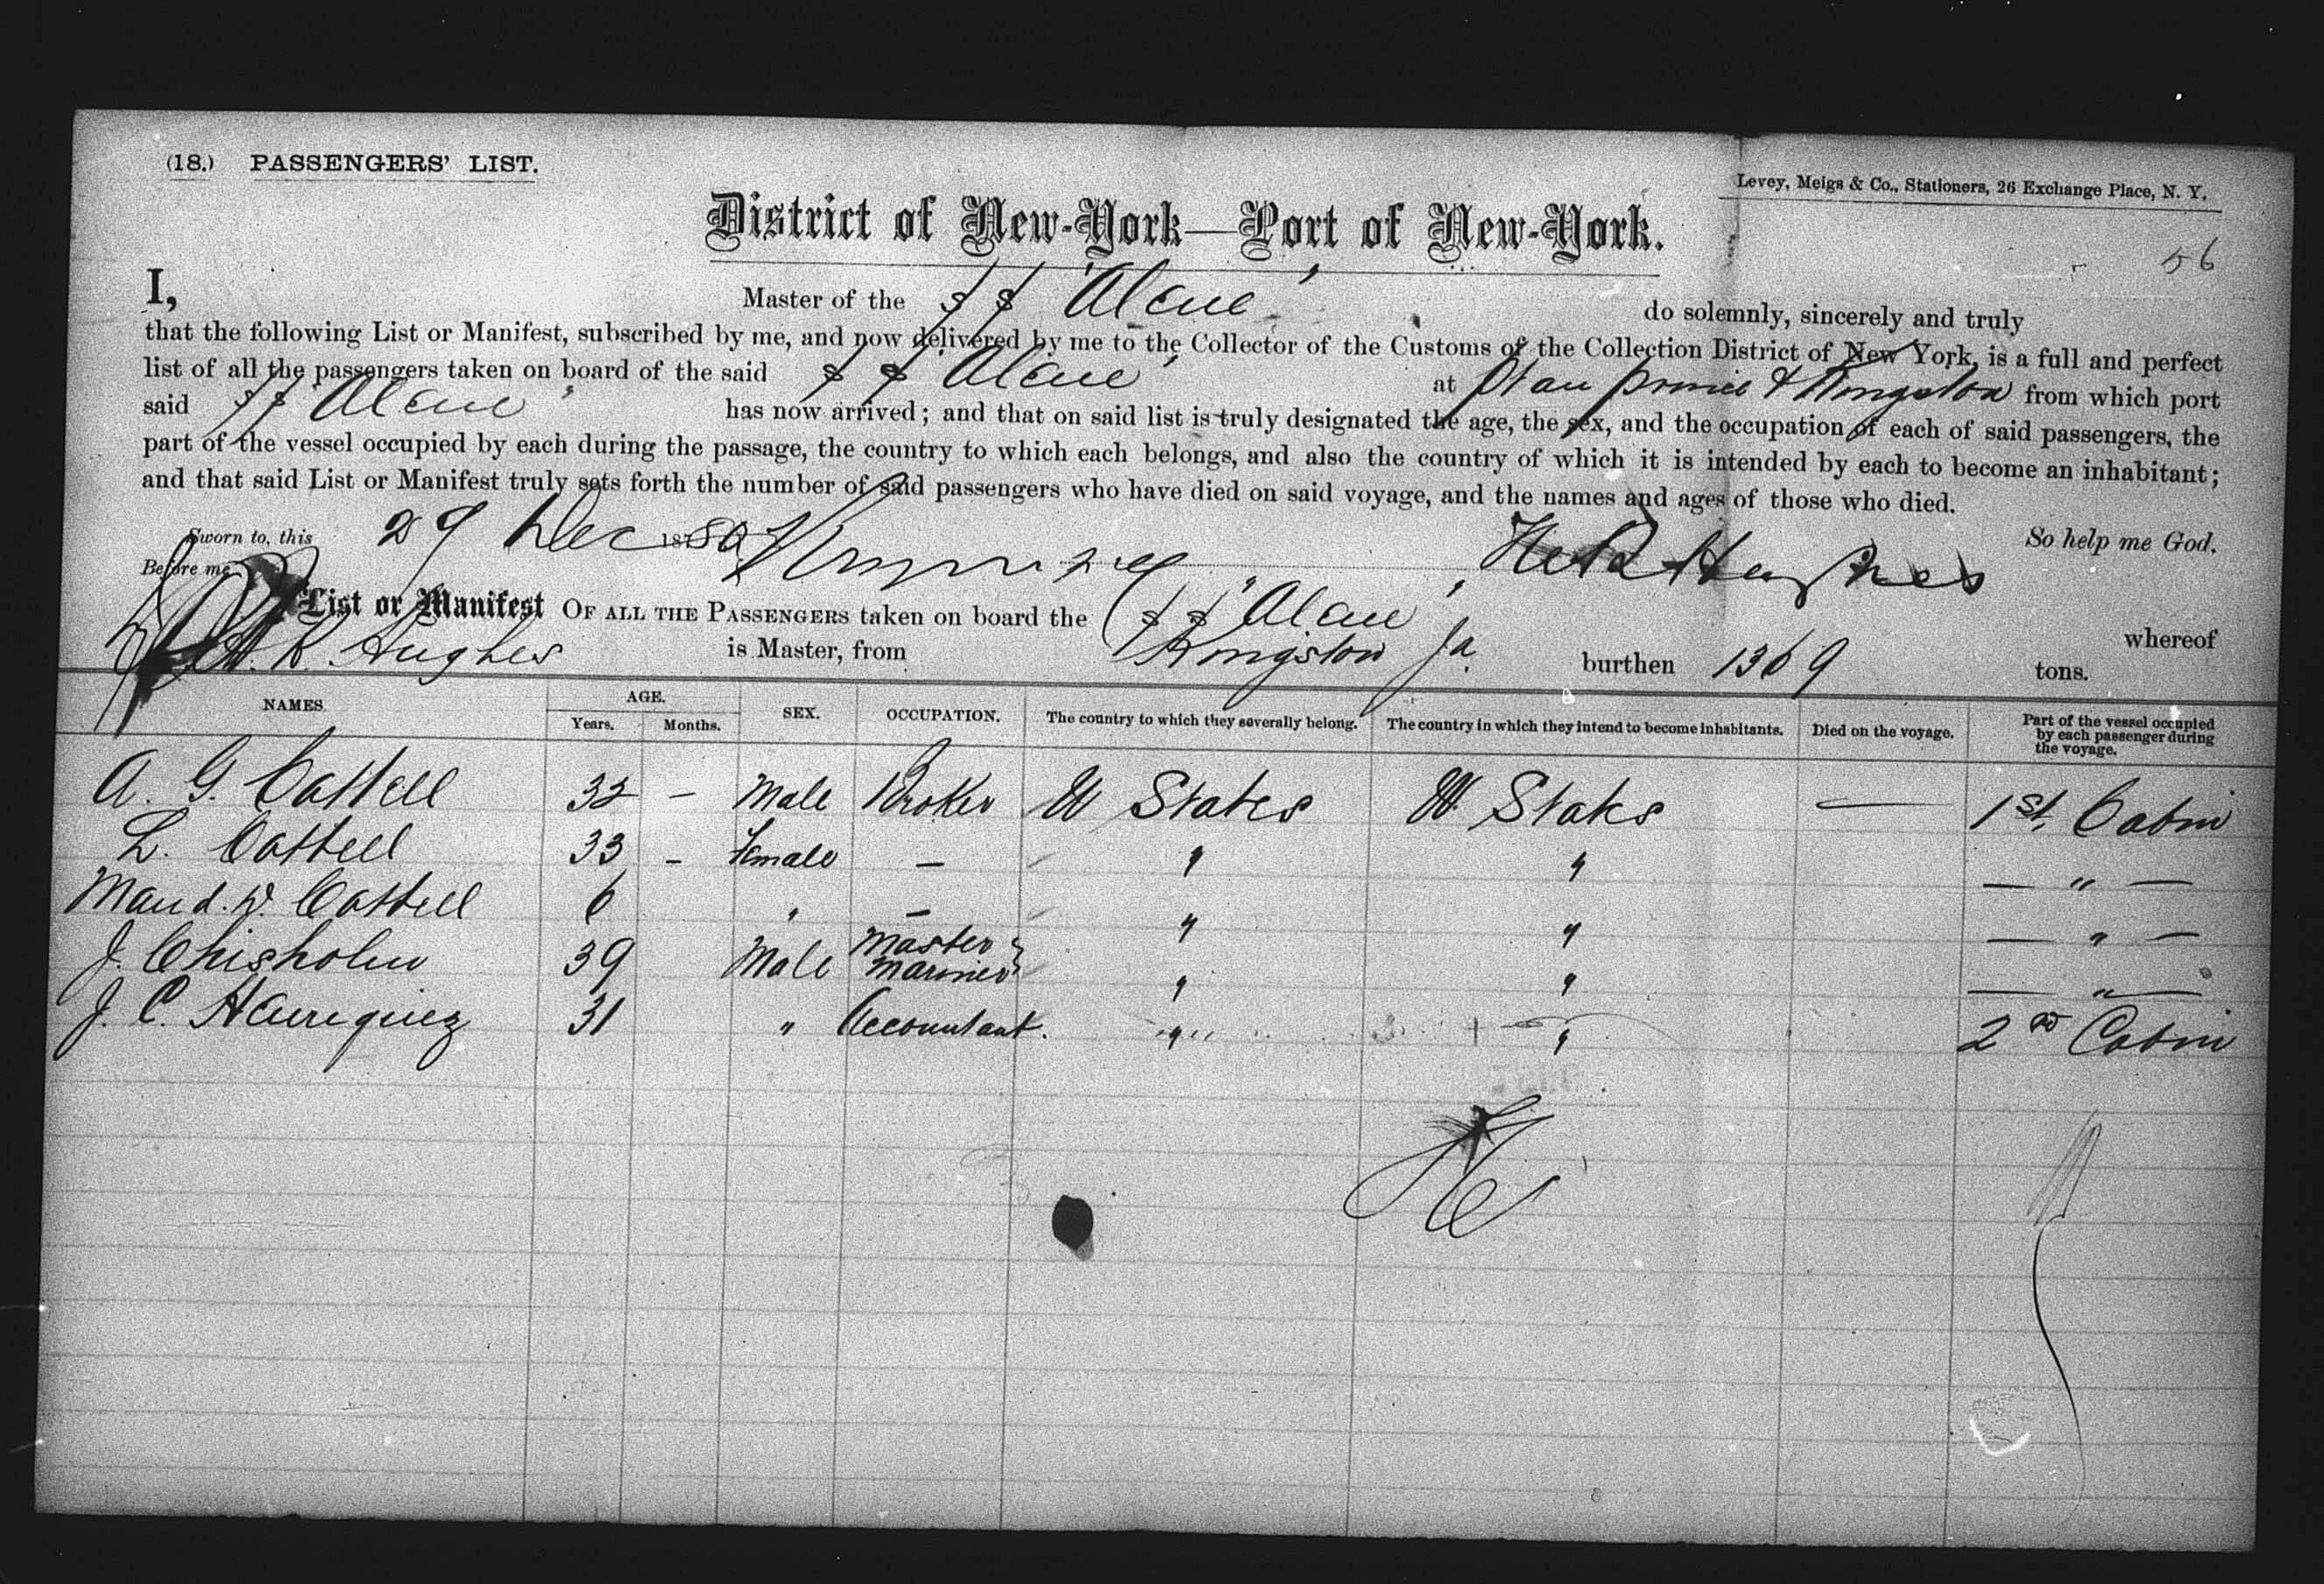 (18.) PASSENGERS' LIST.
Levey, Meigs & Co., Stationers, 26 Exchange Place, N. Y.
District of New-York—Port of New-York.
56
I, Master of the S S "Alene" do solemnly, sincerely and truly
that the following List or Manifest, subscribed by me, and now delivered by me to the Collector of the Customs of the Collection District of New York, is a full and perfect
list of all the passengers taken on board of the said S S Alene" at Port au Prince & Kingston from which port
said S S "Alene" has now arrived; and that on said list is truly designated the age, the sex, and the occupation of each of said passengers, the
part of the vessel occupied by each during the passage, the country to which each belongs, and also the country of which it is intended by each to become an inhabitant;
and that said List or Manifest truly sets forth the number of said passengers who have died on said voyage, and the names and ages of those who died.
Sworn to, this 29 Dec 1880 Hughes So help me God.
Before me
List or Manifest OF ALL THE PASSENGERS taken on board the S S "Alene" whereof
Hughes is Master, from Kingston Ja. burthen 1369 tons.
NAMES. AGE. SEX. OCCUPATION. The country to which they severally belong. The country in which they intend to become inhabitants. Died on the voyage. Part of the vessel occupied by each passenger during the voyage.
Years. Months.
A. G. Cattell 32 — Male Broker U States U States — 1st. Cabin
L. Cattell 33 — Female — " " — " —
Maud. W. Cattell 6 " — " " — " —
J. Chisholm 39 Male Master Mariner " " — " —
J. C. Henriquez 31 " Accountant. " " 2nd Cabin